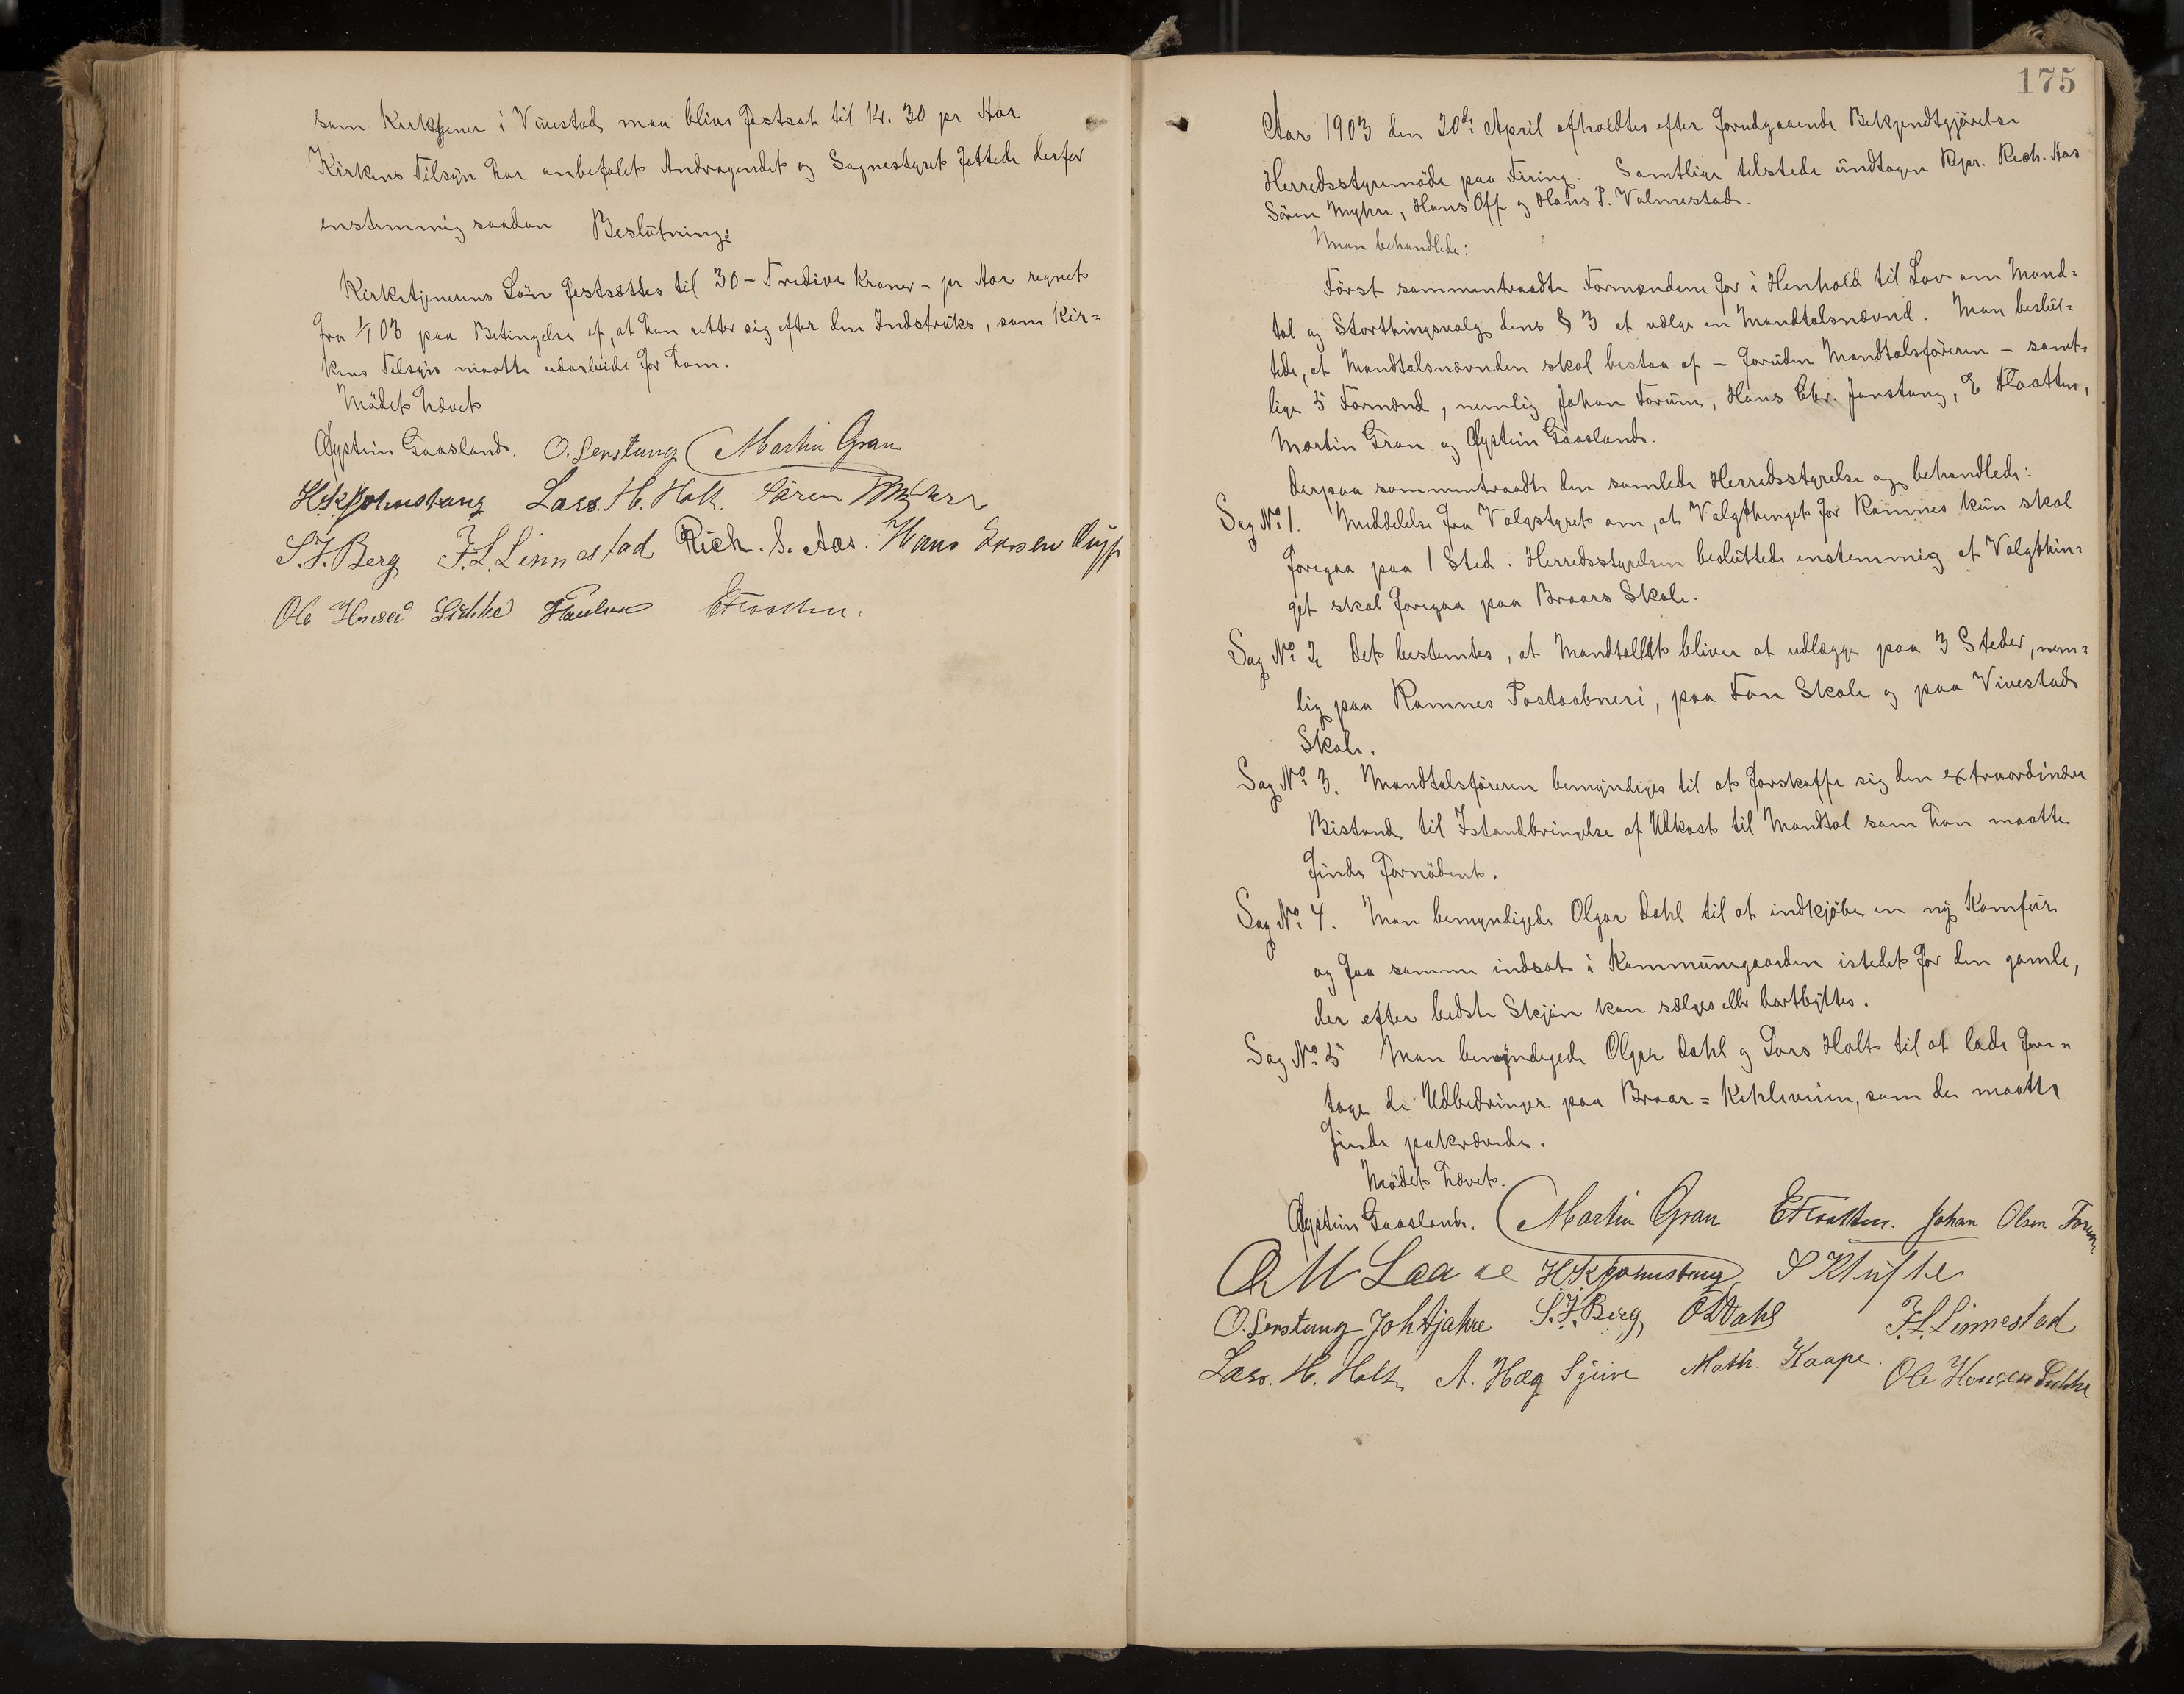 som Kirketjener i Vivestad maa blive fastsat til Kr. 30 pr Aar
Kirkens Tilsyn har anbefalet Andragendet og Sognestyret fattede derfor
enstemmig saadan Beslutning:
Kirketjenerens Løn festsættes til 30 - Tredive Kroner - pr Aar regnet
fra 1/1 03 paa Betingelse af, at han retter sig efter den Indstruks, som Kir=
kens Tilsyn maatte udarbeide for ham.
Mödet hævet
Øystein Gaasland. O. Senstang Martin Gran
H. K. Johnstang Lars. H. Holt. Sören Myhre
S. F. Berg F. L. Linnestad Rich. S. Aas. Hans
Ole Hansen Paulsen E Flaatten.
175
Aar 1903 den 20de April afholdtes efter forudgaaende Bekjendtgjörelse
Herredsstyremöde paa Firing. Samtlige tilstede undtagen Rpr. Rich. Aas
Sören Myhre, Hans Off og Hans P. Valmestad.
Man behandlede:
Först sammentraadte Formændene for i Henhold til Lov om Mand=
tal og Storthingsvalg dens § 3 at vælge en Mandtalsnævnd. Man beslut=
tede, at Mandtalsnævnden skal bestaa af - foruden Mandtalsföreren - samt=
lige 5 Formænd, nemlig Johan Forum, Hans Chr. Jonstang, E Flaatten,
Martin Gran og Øystein Gaasland.
Derpaa sammentraadte den samlede Herredsstyrelse og behandlede:
Sag No 1. Meddelelse fra Valgstyret om, at Valgthinget for Ramnes kun skal
foregaa paa 1 Sted. Herredsstyrelsen besluttede enstemmig at Valgthin=
get skal foregaa paa Braars Skole.
Sag No 2 Det bestemtes, at Mandtallet bliver at udlægge paa 3 Steder, nem=
lig paa Ramnes Postaabneri, paa Fon Skole og paa Vivestad
Skole.
Sag No 3. Mandtalsföreren bemyndiges til at forskaffe sig den extraordinær
Bistand til Istandbringelse af Udkast til Mandtal som han maatte
finde fornödent.
Sag No 4. Man bemyndigede Olgar Dahl til at indkjöbe en ny Komfur
og faa samme indsat i Kommunegaarden istedet for den gamle,
der efter bedste Skjön kan sælges eller bortbyttes.
Sag No 5 Man bemyndigede Olgar Dahl og Lars Holt til at lade fore=
tage de Udbedringer paa Braar = Kehleveien, som de maatte
finde paakrævede.
Mödet hævet.
Øystein Gaasland. Martin Gran E Flaatten. Johan Olsen Forum
O M Laa H. K. Johnstang S Klufte
O. Senstang Joh Afjahre S. F. Berg O Dahl F. L. Linnestad
Lars. H. Holt A. Hæg Math. Kaape. Ole Hansen